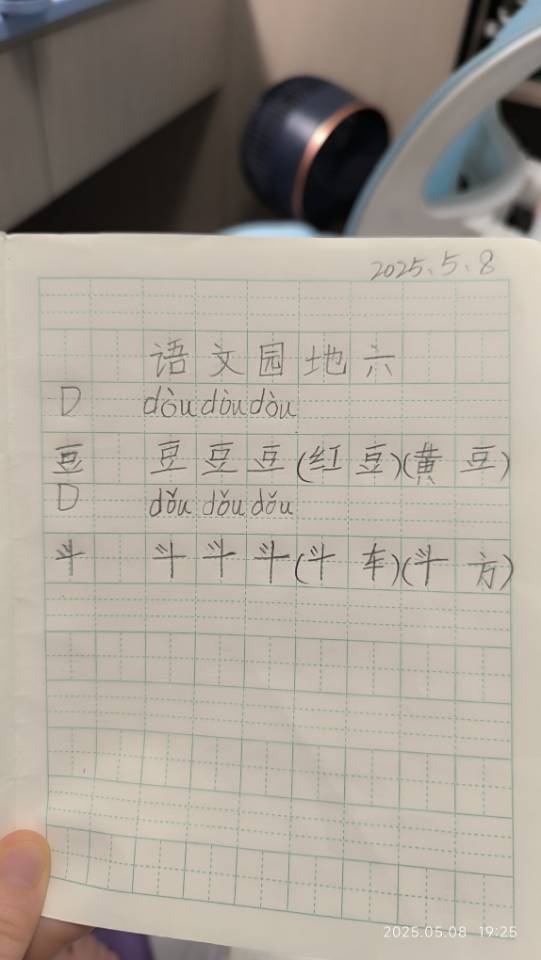 2025.5.8
语文园地六
D dòu dòu dòu
豆 豆 豆 豆 (红豆)(黄豆)
D dǒu dǒu dǒu
斗 斗 斗 斗 (斗车)(斗方)
2025.05.08 19:25